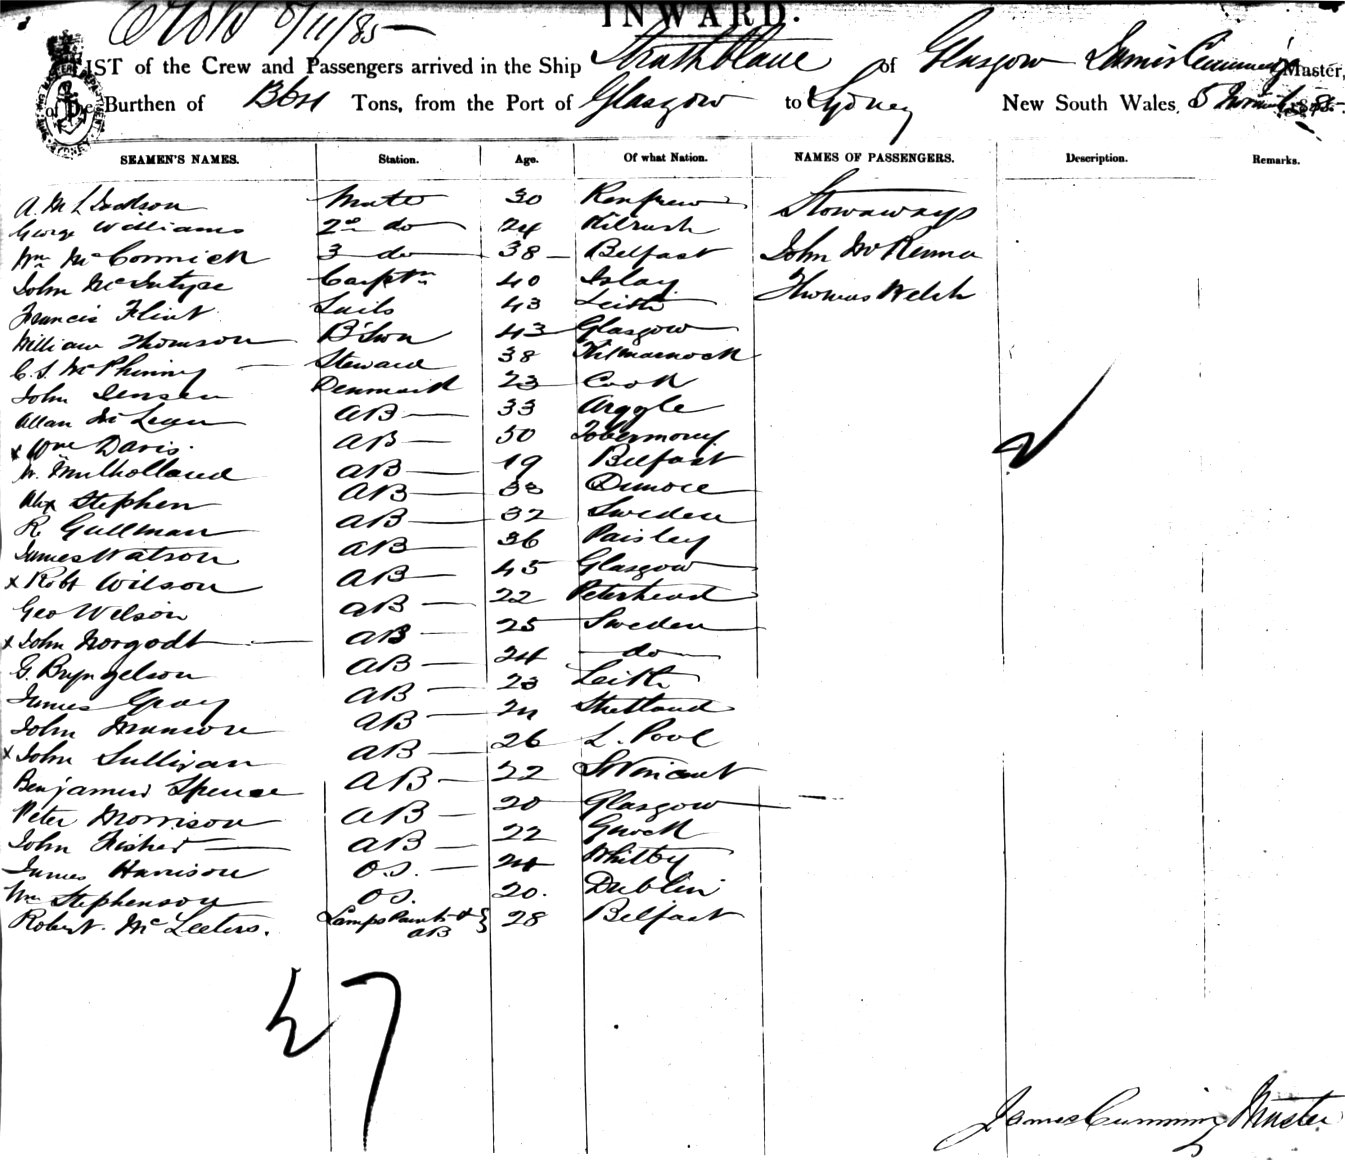 INWARD.
8/11/85
LIST of the Crew and Passengers arrived in the Ship Strathblane of Glasgow James Cumming Master,
of the Burthen of Tons, from the Port of Glasgow to Sydney New South Wales, 5 188
SEAMEN'S NAMES. Station. Age. Of what Nation. NAMES OF PASSENGERS. Description. Remarks.
A. Mate 30 Renfrew Stowaways
George Williams 2nd do 24 Kilrush
Wm McCormick 3 do 38 Belfast John
John McIntyre Carptr 40 Islay Thomas Welsh
Francis Flint Sails 43 Leith
William Thomson B'Swn 43 Glasgow
C. S. McPhinny Steward 38 Kilmarnock
John Jensen Denmark 23 Cook
Allan McLean AB 33 Argyle
x Wm Davis. AB 50 Tobermory
W. Mulholland AB 19 Belfast
Alex Stephen AB 33
R. Gullman AB 32 Sweden
James Watson AB 36 Paisley
x Robt Wilson AB 45 Glasgow
Geo Welson AB 22 Peterhead
x John Norgodt AB 25 Sweden
G. Bryngelson AB 24 do
James Gray AB 23 Leith
John Munsore AB Shetland
x John Sullivan AB 26 L. Pool
Benjamin Spence AB 22 St Vincent
Peter Morrison AB 20 Glasgow
John Fisher AB 22 Gnock
James Harrison O.S. 24 Whitby
Wm Stephenson O.S. 20. Dublin
Robert McLeeters. Lamps Paints & AB } 28 Belfast
2
27
James Cumming Master